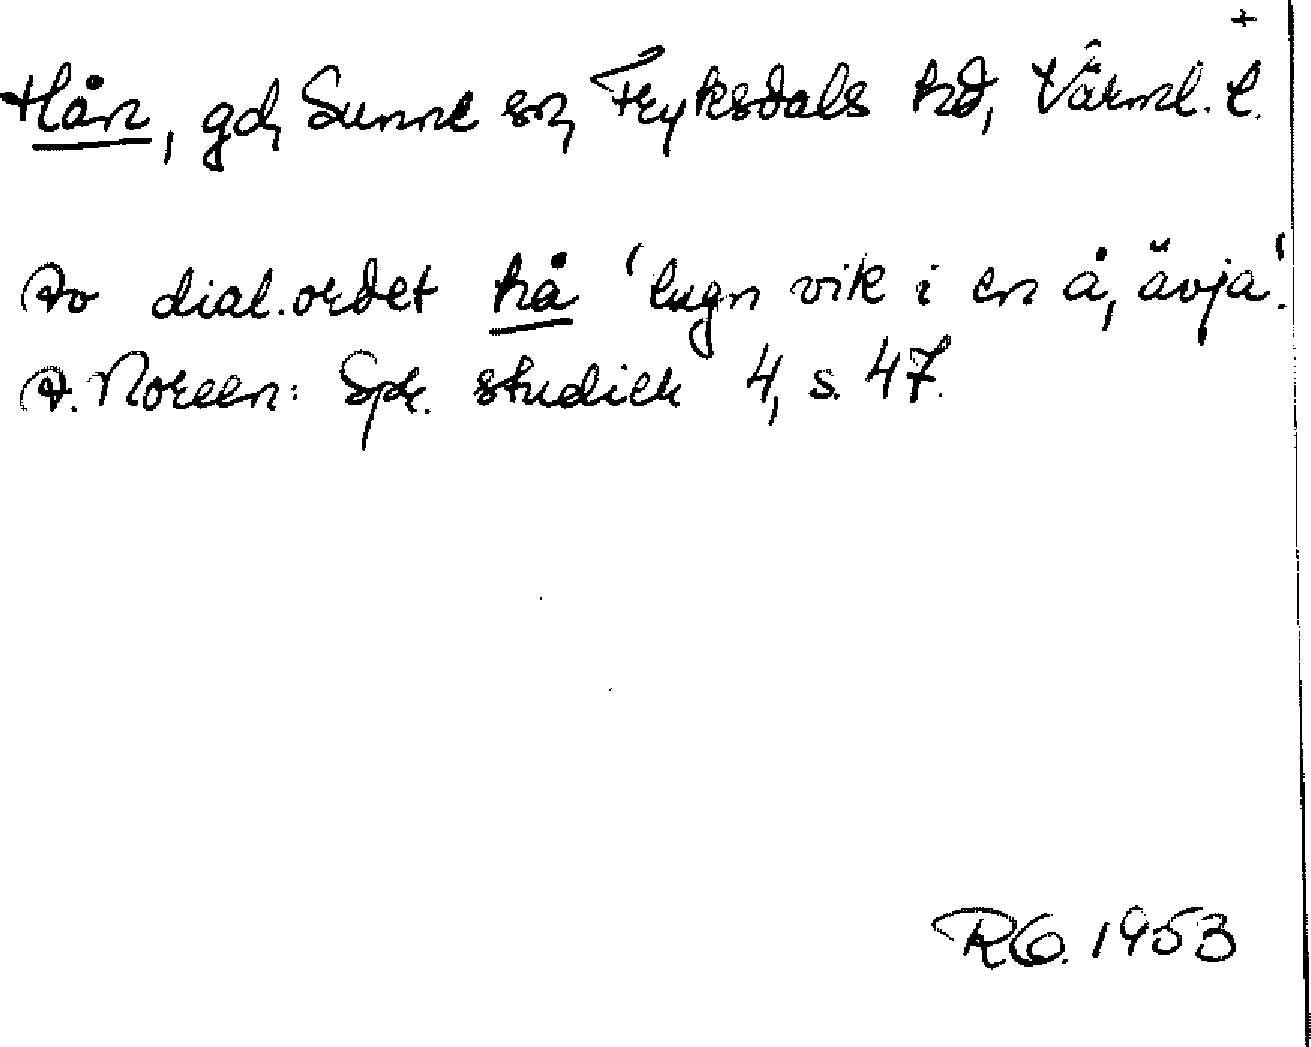 +
Hån, gd, Sunne sn, Fryksdals hd, Värml. l.
Av dial.ordet hå 'lugn vik i en å, ävja'.
A. Noreen: Spr. studier 4, s. 47.
RG. 1953